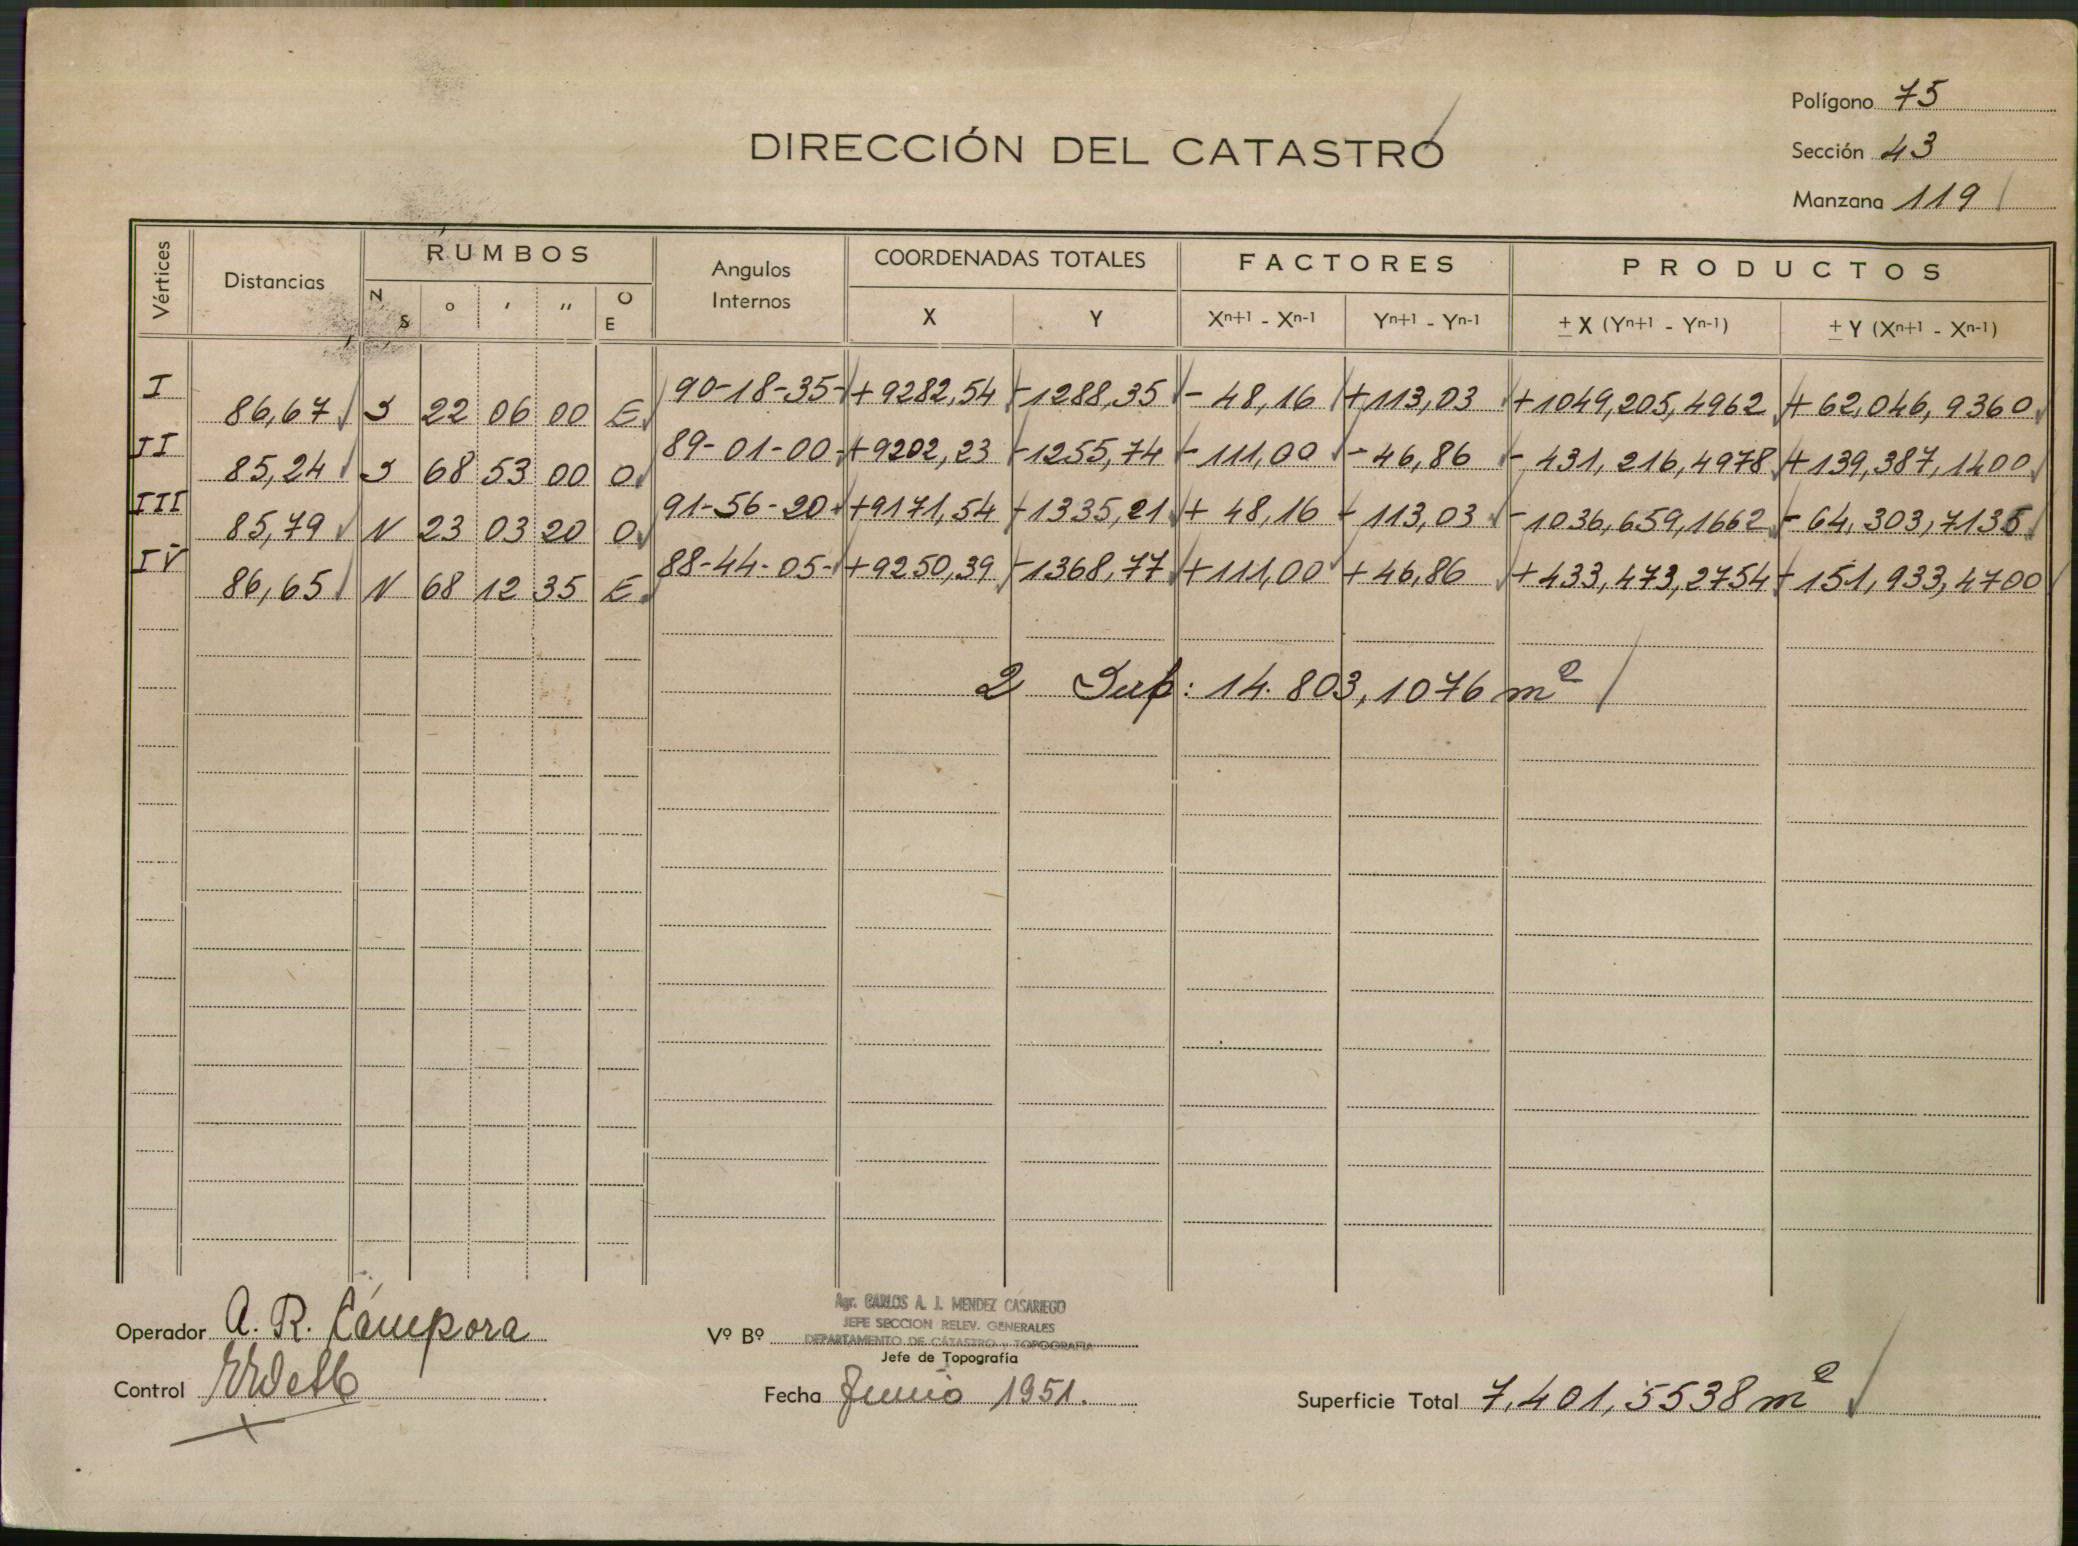 Polígono 75
DIRECCIÓN DEL CATASTRO
Sección 43
Manzana 119
Vértices Distancias RUMBOS Angulos Internos COORDENADAS TOTALES FACTORES PRODUCTOS
N S ° ' " O E X Y Xn+1 - Xn-1 Yn+1 - Yn-1 ± X (Yn+1 - Yn-1) ± Y (Xn+1 - Xn-1)
I 90-18-35 +9282,54 -1288,35 - 48,16 +113,03 +1049,205,4962 + 62,046,9360
86,67 S 22 06 00 E
II 89-01-00 +9202,23 -1255,74 -111,00 - 46,86 - 431,216,4978 +139,387,1400
85,24 S 68 53 00 O
III 91-56-20 +9171,54 -1335,21 + 48,16 -113,03 -1036,659,1662 - 64,303,7135
85,79 N 23 03 20 O
IV 88-44-05 +9250,39 -1368,77 +111,00 + 46,86 +433,473,2754 -151,933,4700
86,65 N 68 12 35 E
2 Sup: 14.803,1076 m²
Operador A. R. Cámpora
Vº Bº
Agr. CARLOS A. J. MENDEZ CASARIEGO
JEFE SECCION RELEV. GENERALES
DEPARTAMENTO DE CATASTRO y TOPOGRAFIA
Jefe de Topografía
Control
Fecha Junio 1951.
Superficie Total 7,401,5538 m²